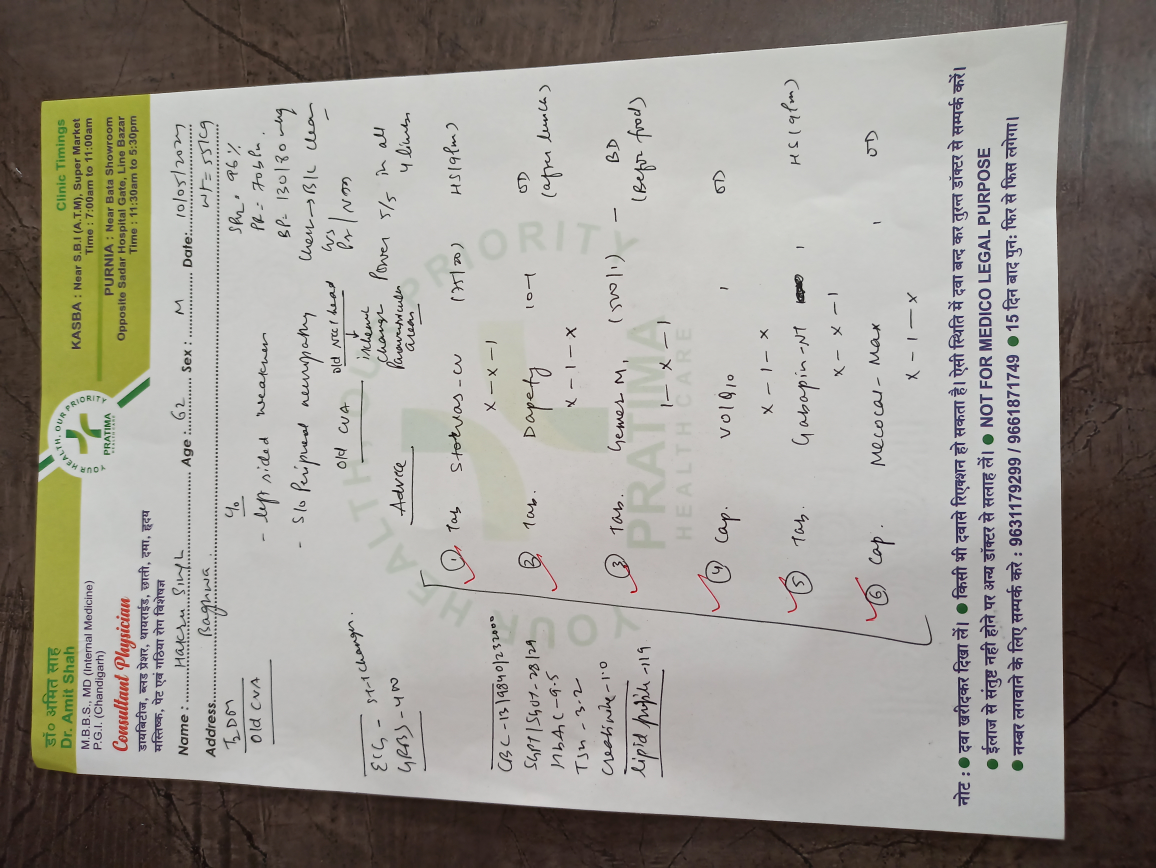 डॉ० अमित साह
Dr. Amit Shah
M.B.B.S., MD (Internal Medicine)
P.G.I. (Chandigarh)
Consultant Physician
डायबिटीज, ब्लड प्रेशर, थायराईड, छाती, दमा, हृदय
मस्तिष्क, पेट एवं गठिया रोग विशेषज्ञ
YOUR HEALTH, OUR PRIORITY
PRATIMA
HEALTH CARE
Clinic Timings
KASBA : Near S.B.I (A.T.M), Super Market
Time : 7:00am to 11:00am
PURNIA : Near Bata Showroom
Opposite Sadar Hospital Gate, Line Bazar
Time : 11:30am to 5:30pm
Name : Singh Age : 62 Sex : M Date: 10/05/202
Address. Baghwa WT = 55 kg
Old CVA
c/o
- left sided weakness
- S/o Peripheral neuropathy
SPO2 - 96%
PR = 70 bpm.
BP = 130/80 mmHg
Chest → B/L Clear
Old CVA
old NCCT head
↓
ischemic change
Periventricular areas
Power 5/5 in all 4 limbs
ECG - ST-T changes.
G(RBS) - 400
CBC - 13/9840/232000
SGPT/SGOT - 28/29
HbA1C - 9.5
TSH - 3.2
Creatinine - 1.0
lipid profile - 119
Advice
① Tab Storvas-CV (75/20) HS (9pm)
x - x - 1
② Tab. 10-1 OD
x - 1 - x (after lunch)
③ Tab. Gemer M1 (500/1) - BD
1 - x - 1 (Before food)
④ Cap. VolQ10 1 OD
x - 1 - x
⑤ Tab. Gabapin-NT 1 HS (9pm)
x - x - 1
⑥ Cap. Mecocal-Max 1 OD
x - 1 - x
YOUR HEALTH, OUR PRIORITY
PRATIMA
HEALTH CARE
नोट : ● दवा खरीदकर दिखा लें। ● किसी भी दवासे रिएक्शन हो सकता है। ऐसी स्थिति में दवा बन्द कर तुरन्त डॉक्टर से सम्पर्क करें।
● ईलाज से संतुष्ट नही होने पर अन्य डॉक्टर से सलाह लें। ● NOT FOR MEDICO LEGAL PURPOSE
● नम्बर लगवाने के लिए सम्पर्क करे : 9631179299 / 9661871749 ● 15 दिन बाद पुन: फिर से फिस लगेगा।